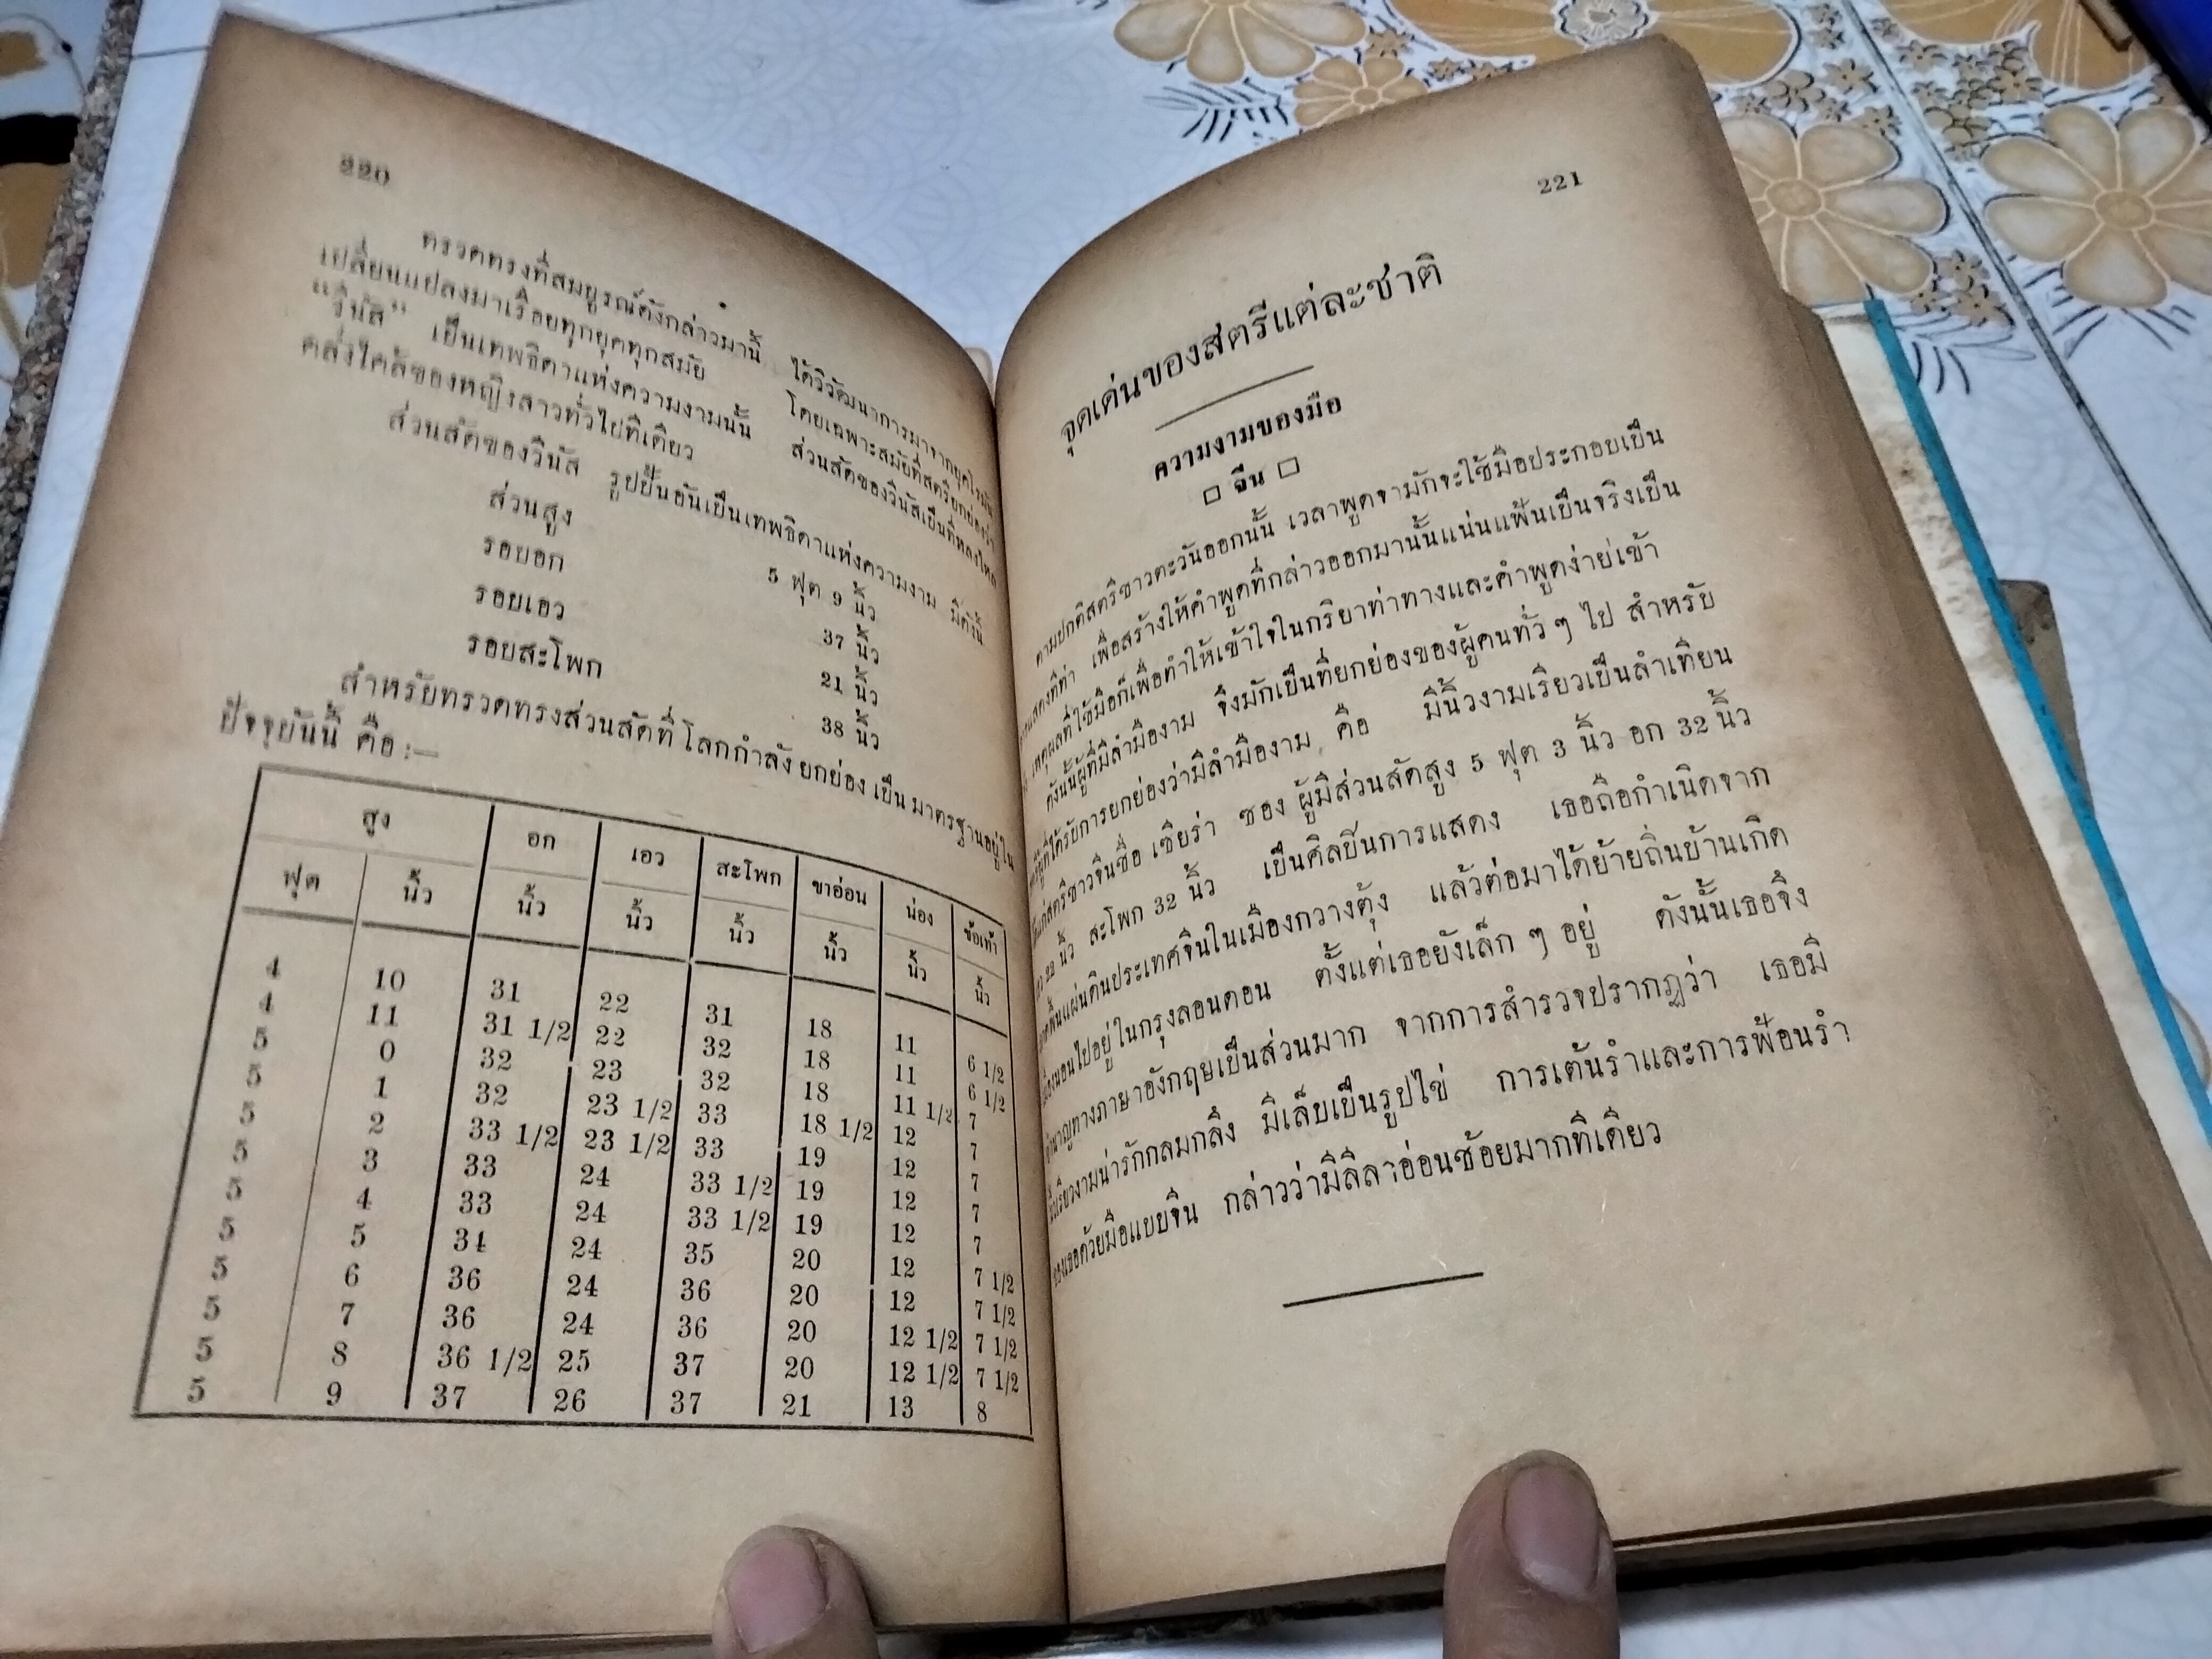 220
ทรวดทรงที่สมบูรณ์ดังกล่าวมานี้ ได้วิวัฒนาการมาจากยุคโรมัน
เปลี่ยนแปลงมาเรื่อยทุกยุคทุกสมัย โดยเฉพาะสมัยที่สตรียกย่องว่า
“วีนัส” เป็นเทพธิดาแห่งความงามนั้น ส่วนสัดของวีนัสเป็นที่หลงใหล
คลั่งไคล้ของหญิงสาวทั่วไปทีเดียว
ส่วนสัดของวีนัส รูปปั้นอันเป็นเทพธิดาแห่งความงาม มีดังนี้
ส่วนสูง 5 ฟุต 9 นิ้ว
รอบอก 37 นิ้ว
รอบเอว 21 นิ้ว
รอบสะโพก 38 นิ้ว
สำหรับทรวดทรงส่วนสัดที่โลกกำลังยกย่อง เป็นมาตรฐานอยู่ใน
ปัจจุบันนี้ คือ :—
สูง อก เอว สะโพก ขาอ่อน น่อง ข้อเท้า
ฟุต นิ้ว นิ้ว นิ้ว นิ้ว นิ้ว นิ้ว นิ้ว
4 10 31 22 31 18 11 6 1/2
4 11 31 1/2 22 32 18 11 6 1/2
5 0 32 23 32 18 11 1/2 7
5 1 32 23 1/2 33 18 1/2 12 7
5 2 33 1/2 23 1/2 33 19 12 7
5 3 33 24 33 1/2 19 12 7
5 4 33 24 33 1/2 19 12 7
5 5 34 24 35 20 12 7 1/2
5 6 36 24 36 20 12 7 1/2
5 7 36 24 36 20 12 1/2 7 1/2
5 8 36 1/2 25 37 20 12 1/2 7 1/2
5 9 37 26 37 21 13 8
221
จุดเด่นของสตรีแต่ละชาติ
ความงามของมือ
□ จีน □
ตามปกติสตรีชาวตะวันออกนั้น เวลาพูดจามักจะใช้มือประกอบเป็น
เพื่อสร้างให้คำพูดที่กล่าวออกมานั้นแน่นแฟ้นเป็นจริงเป็น
เหตุผลที่ใช้มือก็เพื่อทำให้เข้าใจในกริยาท่าทางและคำพูดง่ายเข้า
ดังนั้นผู้ที่มีลำมืองาม จึงมักเป็นที่ยกย่องของผู้คนทั่ว ๆ ไป สำหรับ
ที่ได้รับการยกย่องว่ามีลำมืองาม คือ มีนิ้วงามเรียวเป็นลำเทียน
แก่สตรีชาวจีนชื่อ เซียร่า ซอง ผู้มีส่วนสัดสูง 5 ฟุต 3 นิ้ว อก 32 นิ้ว
22 นิ้ว สะโพก 32 นิ้ว เป็นศิลปินการแสดง เธอถือกำเนิดจาก
พื้นแผ่นดินประเทศจีนในเมืองกวางตุ้ง แล้วต่อมาได้ย้ายถิ่นบ้านเกิด
ไปอยู่ในกรุงลอนดอน ตั้งแต่เธอยังเล็ก ๆ อยู่ ดังนั้นเธอจึง
ชำนาญทางภาษาอังกฤษเป็นส่วนมาก จากการสำรวจปรากฏว่า เธอมี
นิ้วเรียวงามน่ารักกลมกลึง มีเล็บเป็นรูปไข่ การเต้นรำและการฟ้อนรำ
ของเธอด้วยมือแบบจีน กล่าวว่ามีลีลาอ่อนช้อยมากทีเดียว